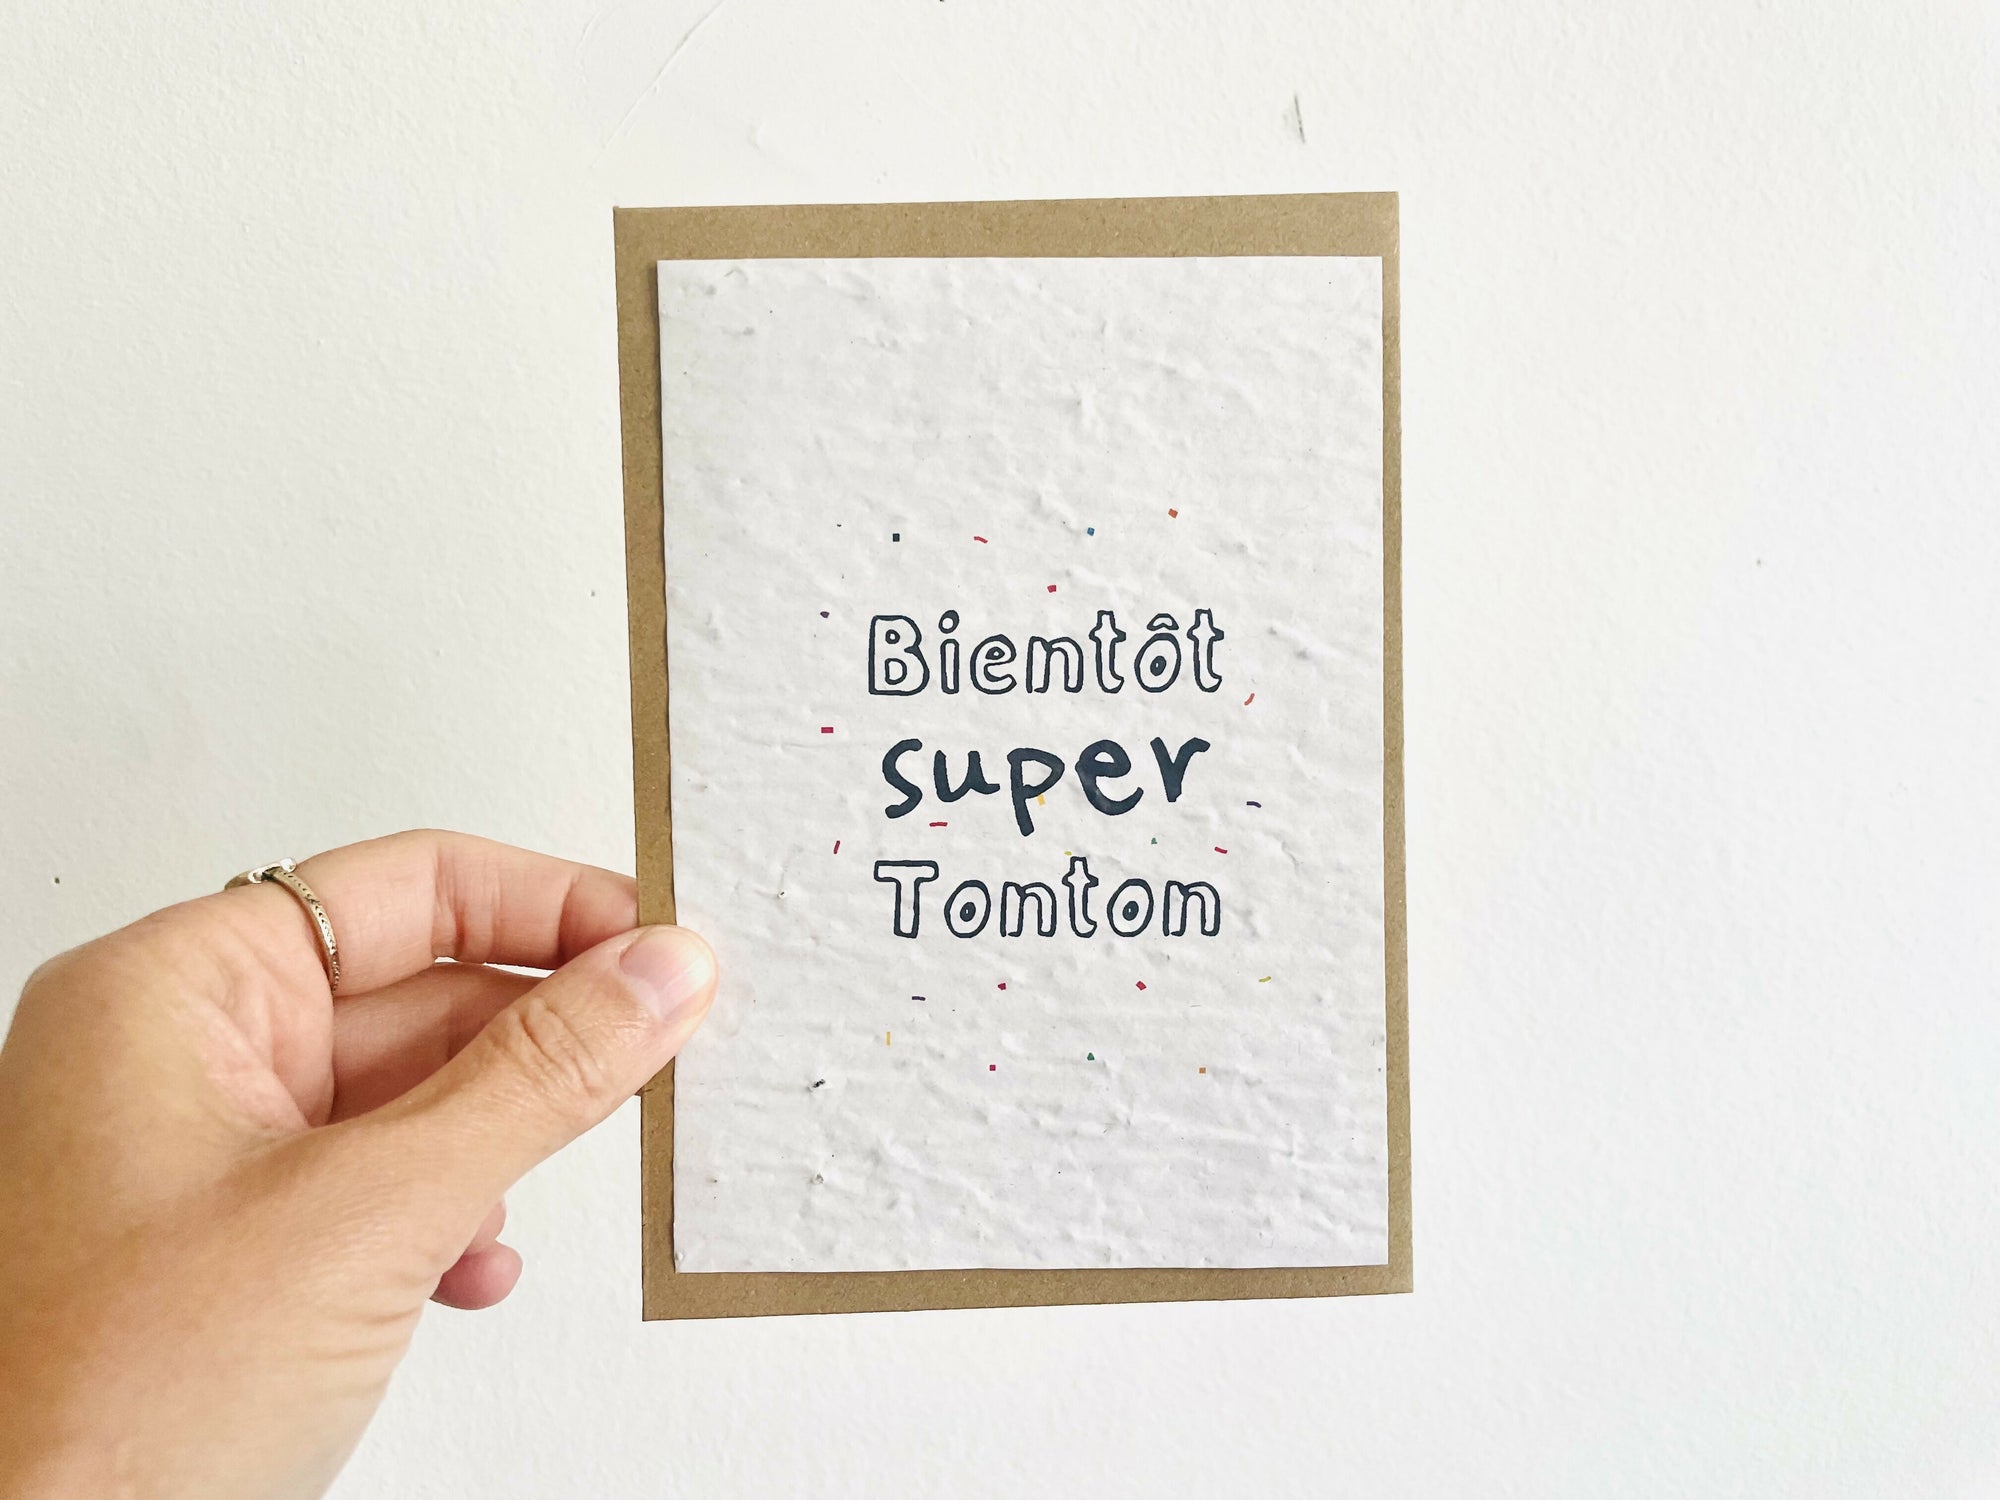 Bientôt
super
Tonton